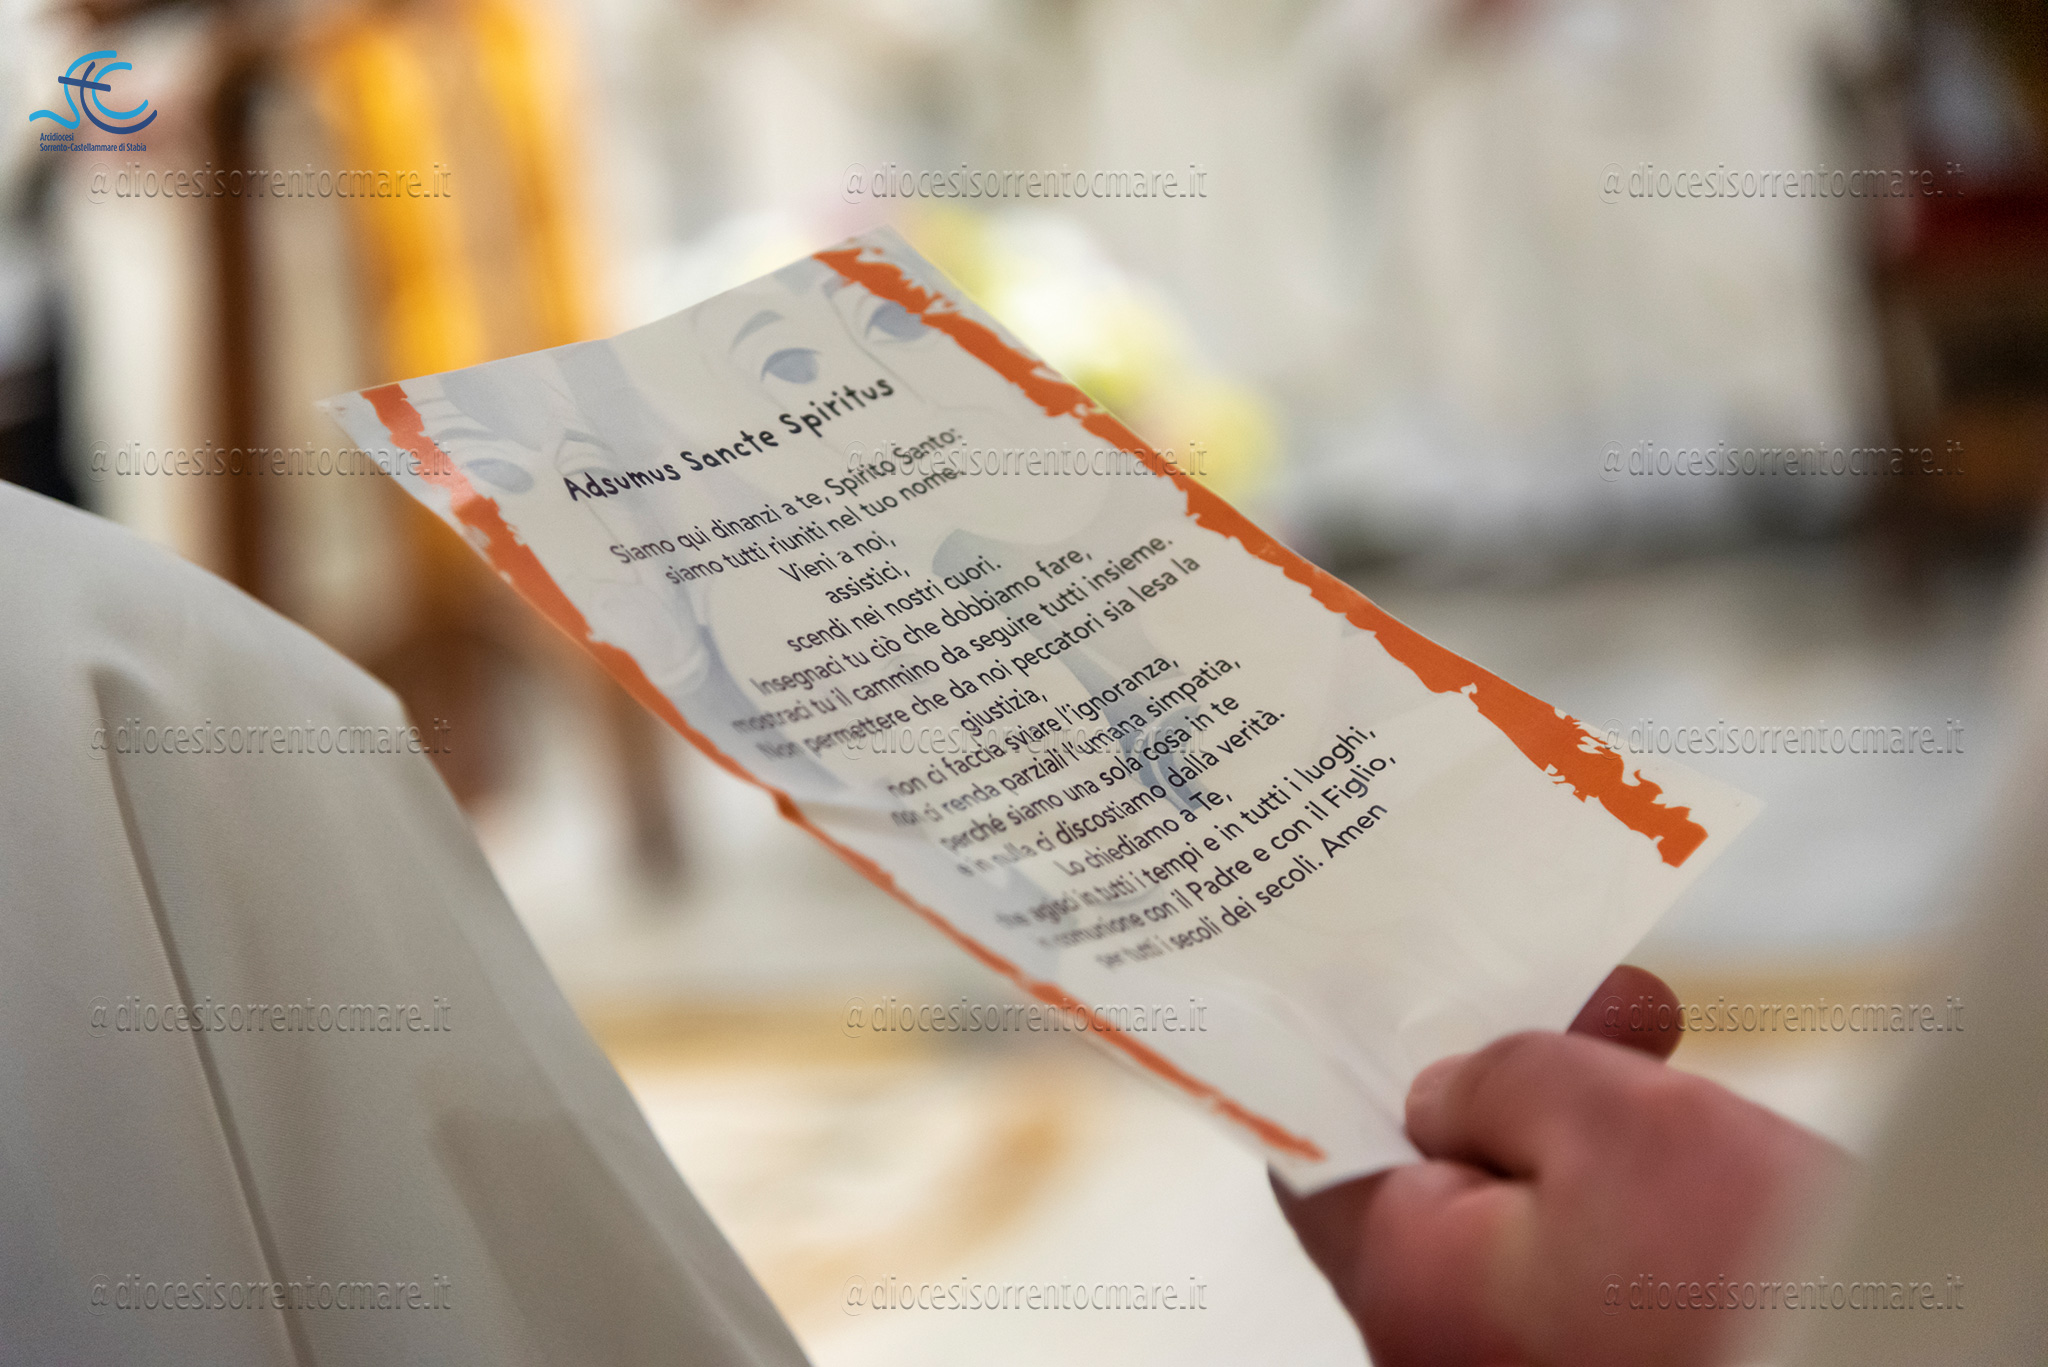 Arcidiocesi
Sorrento-Castellammare di Stabia
@diocesisorrentocmare.it @diocesisorrentocmare.it @diocesisorrentocmare.it
@diocesisorrentocmare.it @diocesisorrentocmare.it @diocesisorrentocmare.it
@diocesisorrentocmare.it @diocesisorrentocmare.it @diocesisorrentocmare.it
@diocesisorrentocmare.it @diocesisorrentocmare.it @diocesisorrentocmare.it
@diocesisorrentocmare.it @diocesisorrentocmare.it @diocesisorrentocmare.it
Adsumus Sancte Spiritus
Siamo qui dinanzi a te, Spirito Santo:
siamo tutti riuniti nel tuo nome.
Vieni a noi,
assistici,
scendi nei nostri cuori.
Insegnaci tu ciò che dobbiamo fare,
mostraci tu il cammino da seguire tutti insieme.
Non permettere che da noi peccatori sia lesa la
giustizia,
non ci faccia sviare l'ignoranza,
non ci renda parziali l'umana simpatia,
perché siamo una sola cosa in te
e in nulla ci discostiamo dalla verità.
Lo chiediamo a Te,
che agisci in tutti i tempi e in tutti i luoghi,
in comunione con il Padre e con il Figlio,
per tutti i secoli dei secoli. Amen